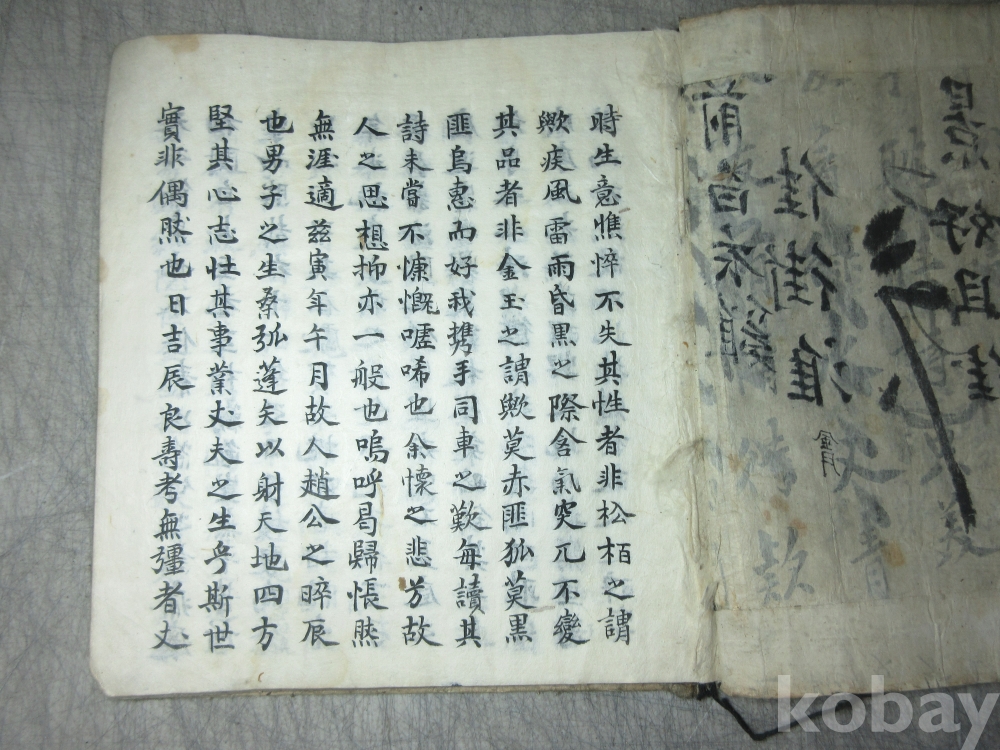 時生意憔悴不失其性者非松栢之謂
歟疾風雷雨昏黑之際含氣突兀不變
其品者非金玉之謂歟莫赤匪狐莫黑
匪烏惠而好我携手同車之歎每讀其
詩未嘗不慷慨噓唏也余懷之悲芳故
人之思想抑亦一般也嗚呼曷歸悵然
無涯適玆寅年午月故人趙公之晬辰
也男子之生桑弧蓬矢以射天地四方
堅其心志壯其事業丈夫之生乎斯世
實非偶然也日吉辰良壽考無彊者丈
景好且佳
往街淮
前
kobay